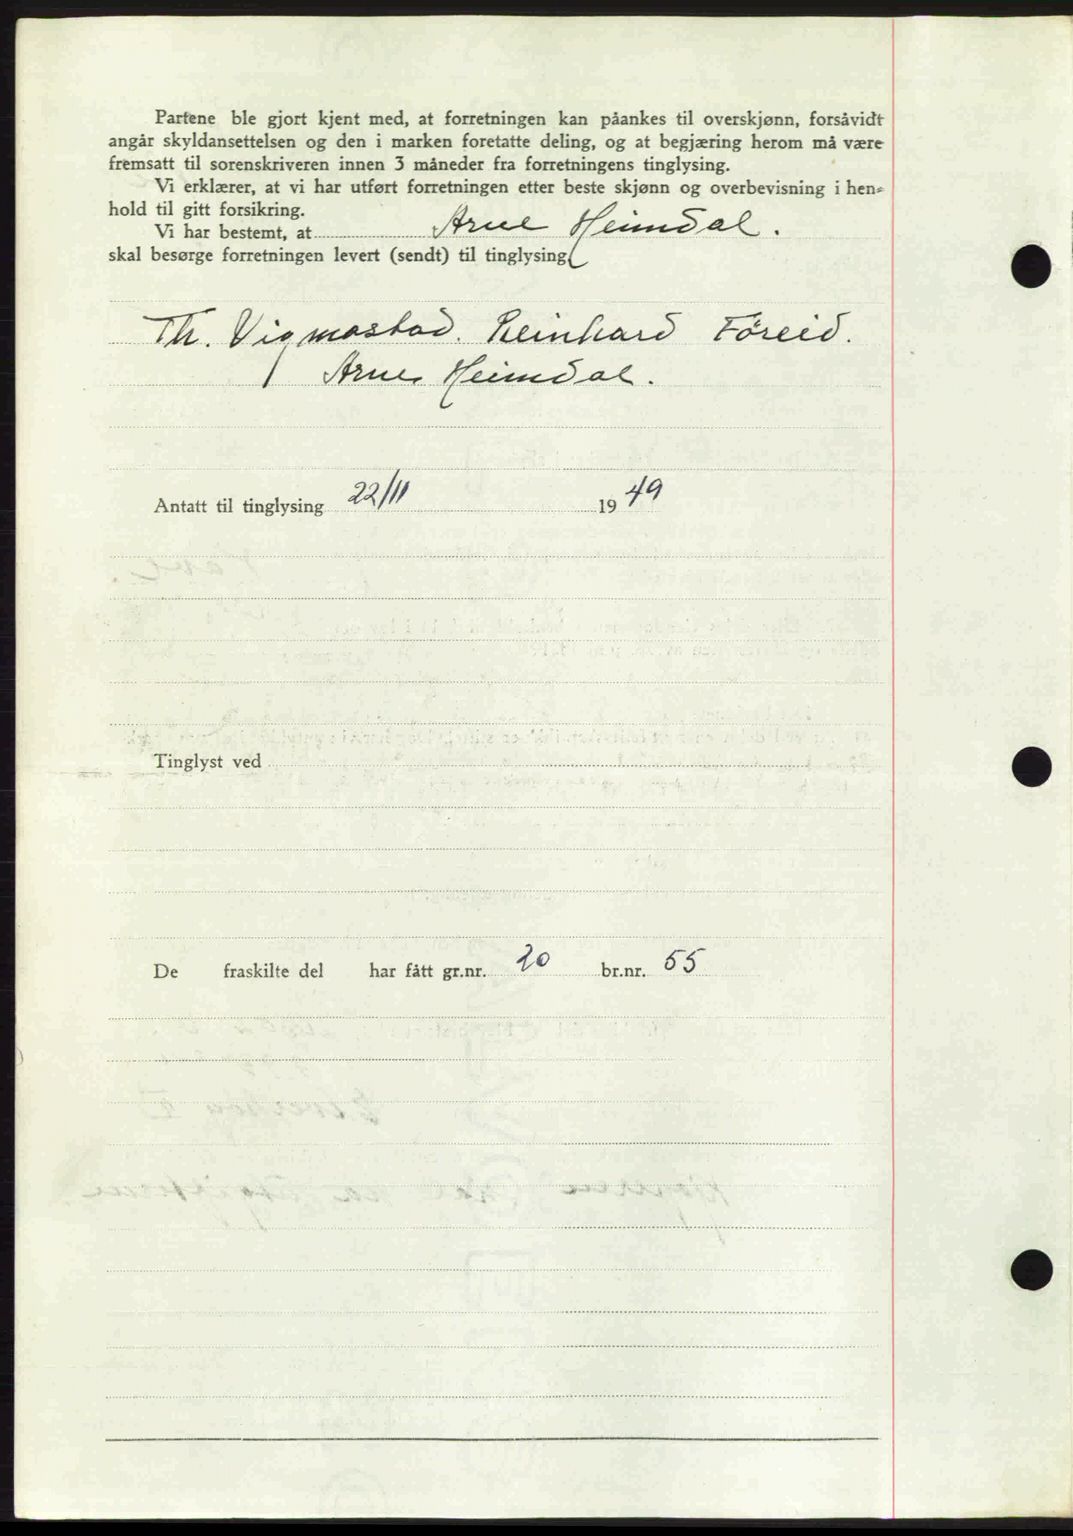 Partene ble gjort kjent med, at forretningen kan påankes til overskjønn, forsåvidt
angår skyldansettelsen og den i marken foretatte deling, og at begjæring herom må være
fremsatt til sorenskriveren innen 3 måneder fra forretningens tinglysing.
Vi erklærer, at vi har utført forretningen etter beste skjønn og overbevisning i hen-
hold til gitt forsikring.
Vi har bestemt, at Arne Heimdal.
skal besørge forretningen levert (sendt) til tinglysing
Th. Vigmostad. Reinhard Föreid.
Arne Heimdal.
Antatt til tinglysing 22/11 1949
Tinglyst ved
De fraskilte del har fått gr.nr. 20 br.nr. 55